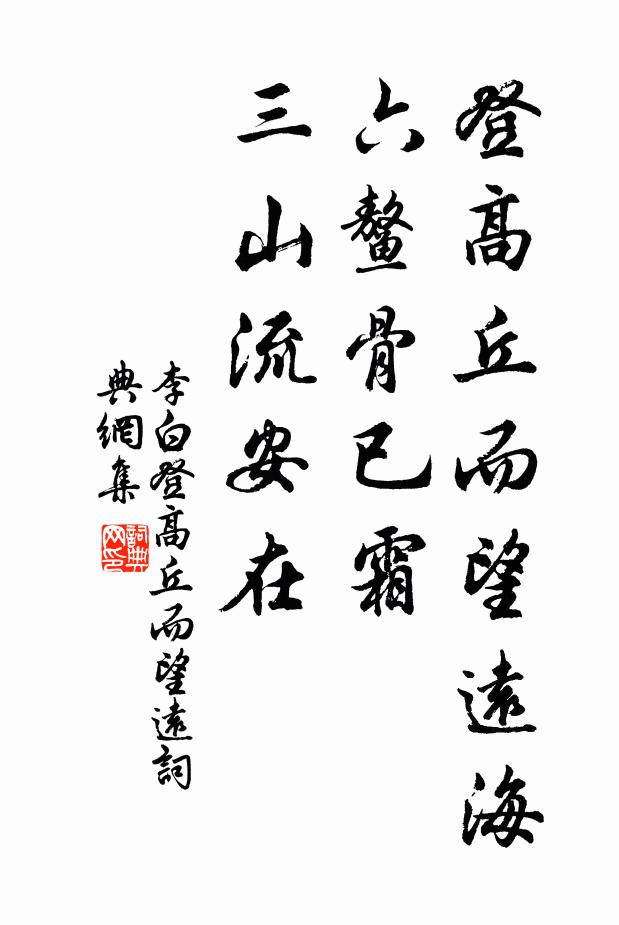 登高丘而望遠海
六鼇骨已霜
三山流安在
李白登高丘而望遠詞
典網集
詞典
网印